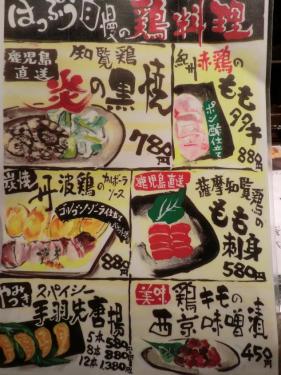 はっぷう自慢の鶏料理
鹿児島直送
知覧鶏の
炎の黒焼
780円
紀州赤鶏の
ももタタキ
ポン酢仕立て
880円
炭焼
丹波鶏の
カルボナーラソース
ゴルゴンゾーラ仕立て
880円
鹿児島直送
薩摩知覧鶏の
もも刺身
580円
やみつき
スパイシー
手羽先唐揚
5本 580円
8本 880円
12本 1,380円
美味
鶏キモの
西京味噌漬
450円